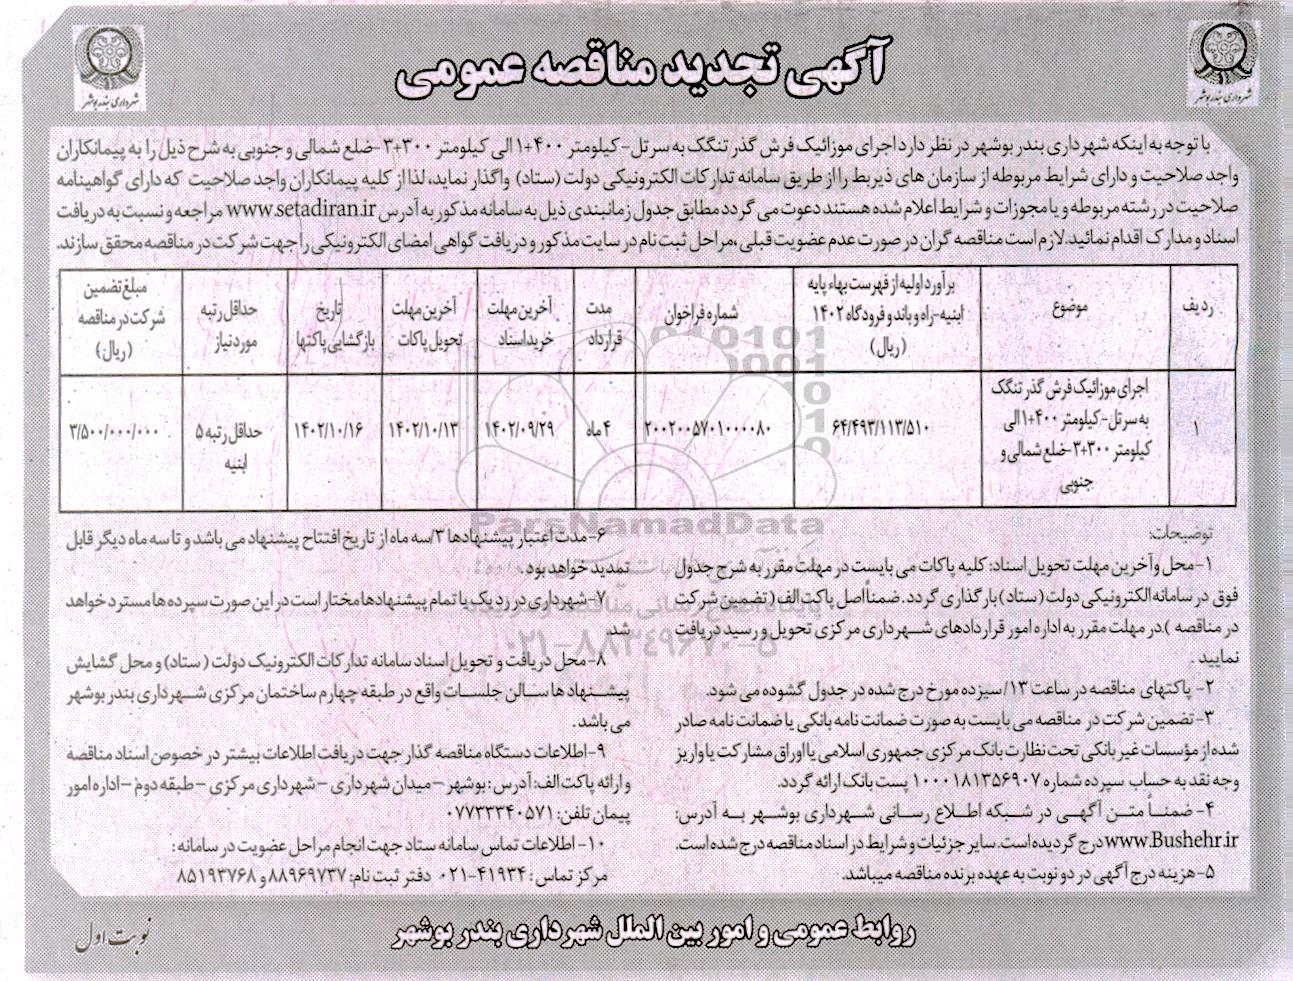 آگهی تجدید مناقصه عمومی
شهرداری بندر بوشهر
شهرداری بندر بوشهر
با توجه به اینکه شهرداری بندر بوشهر در نظر دارد اجرای موزائیک فرش گذر تنگک به سر تل- کیلومتر ۱+۴۰۰ الی کیلومتر ۳+۳۰۰ -ضلع شمالی و جنوبی به شرح ذیل را به پیمانکاران
واجد صلاحیت و دارای شرایط مربوطه از سازمان های ذیربط را از طریق سامانه تدارکات الکترونیکی دولت (ستاد) واگذار نماید، لذا از کلیه پیمانکاران واجد صلاحیت که دارای گواهینامه
صلاحیت در رشته مربوطه و یا مجوزات و شرایط اعلام شده هستند دعوت می گردد مطابق جدول زمانبندی ذیل به سامانه مذکور به آدرس www.setadiran.ir مراجعه و نسبت به دریافت
اسناد و مدارک اقدام نمائید. لازم است مناقصه گران در صورت عدم عضویت قبلی ،مراحل ثبت نام در سایت مذکور و دریافت گواهی امضای الکترونیکی را جهت شرکت در مناقصه محقق سازند.
ردیف
موضوع
برآورد اولیه از فهرست بهاء پایه
ابنیه-راه و باند و فرودگاه ۱۴۰۲
(ریال)
شماره فراخوان
مدت
قرارداد
آخرین مهلت
خرید اسناد
آخرین مهلت
تحویل پاکات
تاریخ
بازگشایی پاکتها
حداقل رتبه
مورد نیاز
مبلغ تضمین
شرکت در مناقصه
(ریال)
۱
اجرای موزائیک فرش گذر تنگک
به سر تل- کیلومتر ۱+۴۰۰ الی
کیلومتر ۳+۳۰۰ -ضلع شمالی و
جنوبی
۶۴/۴۹۳/۱۱۳/۵۱۰
۲۰۰۲۰۰۵۷۰۱۰۰۰۰۸۰
۴ ماه
۱۴۰۲/۰۹/۲۹
۱۴۰۲/۱۰/۱۳
۱۴۰۲/۱۰/۱۶
حداقل رتبه ۵
ابنیه
۳/۵۰۰/۰۰۰/۰۰۰
توضیحات:
۱-محل و آخرین مهلت تحویل اسناد: کلیه پاکات می بایست در مهلت مقرر به شرح جدول
فوق در سامانه الکترونیکی دولت (ستاد) بارگذاری گردد. ضمناً اصل پاکت الف ( تضمین شرکت
در مناقصه )، در مهلت مقرر به اداره امور قراردادهای شهرداری مرکزی تحویل و رسید دریافت
نمایید .
۲- پاکتهای مناقصه در ساعت ۱۳/ سیزده مورخ درج شده در جدول گشوده می شود.
۳- تضمین شرکت در مناقصه می بایست به صورت ضمانت نامه بانکی یا ضمانت نامه صادر
شده از مؤسسات غیر بانکی تحت نظارت بانک مرکزی جمهوری اسلامی یا اوراق مشارکت یا واریز
وجه نقد به حساب سپرده شماره ۱۰۰۰۱۸۱۳۵۶۹۰۷ پست بانک ارائه گردد.
۴- ضمناً متن آگهی در شبکه اطلاع رسانی شهرداری بوشهر به آدرس:
www.Bushehr.ir درج گردیده است. سایر جزئیات و شرایط در اسناد مناقصه درج شده است.
۵-هزینه درج آگهی در دو نوبت به عهده برنده مناقصه میباشد.
۶- مدت اعتبار پیشنهادها ۳/سه ماه از تاریخ افتتاح پیشنهاد می باشد و تا سه ماه دیگر قابل
تمدید خواهد بود .
۷-شهرداری در رد یک یا تمام پیشنهادها مختار است در این صورت سپرده ها مسترد خواهد
شد.
۸- محل دریافت و تحویل اسناد سامانه تدارکات الکترونیک دولت ( ستاد) و محل گشایش
پیشنهاد ها سالن جلسات واقع در طبقه چهارم ساختمان مرکزی شهرداری بندر بوشهر
می باشد .
۹-اطلاعات دستگاه مناقصه گذار جهت دریافت اطلاعات بیشتر در خصوص اسناد مناقصه
و ارائه پاکت الف: آدرس : بوشهر – میدان شهرداری – شهرداری مرکزی – طبقه دوم – اداره امور
پیمان تلفن: ۰۷۷۳۳۳۴۰۵۷۱
۱۰- اطلاعات تماس سامانه ستاد جهت انجام مراحل عضویت در سامانه :
مرکز تماس : ۴۱۹۳۴-۰۲۱ دفتر ثبت نام: ۸۸۹۶۹۷۳۷ و ۸۵۱۹۳۷۶۸
ParsNamadData
۰۲۱-۸۸۳۴۹۶۷۰-۵
روابط عمومی و امور بین الملل شهرداری بندر بوشهر
نوبت اول